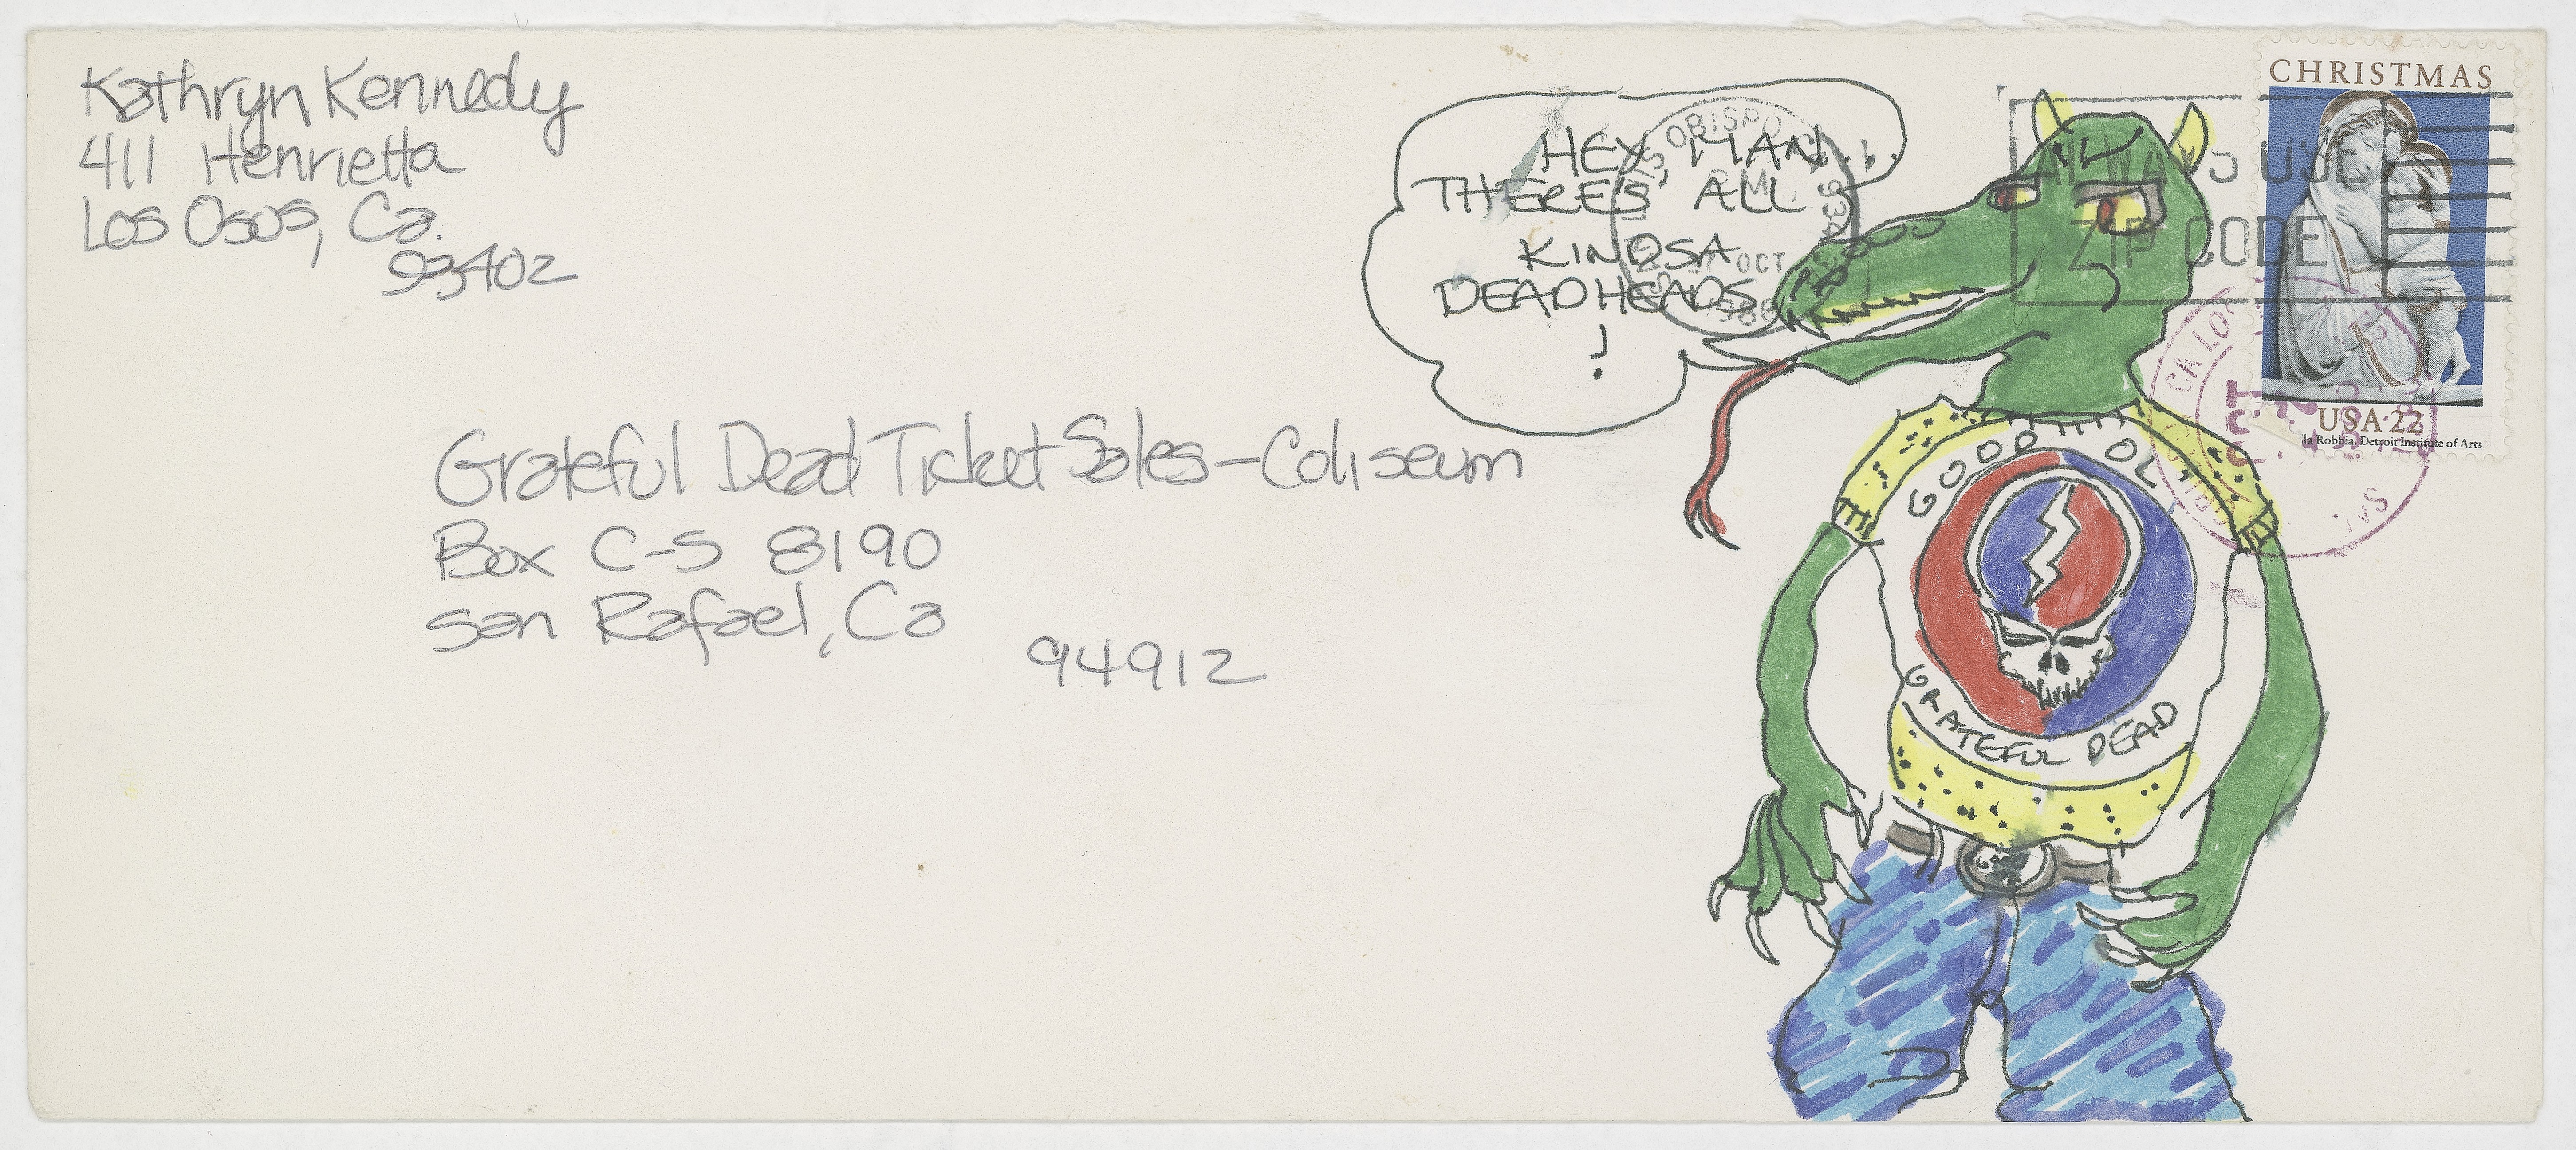 Kathryn Kennedy
411 Henrietta
Los Osos, Ca.
93402
HEY, MAN...
THERE'S ALL
KINDSA
DEADHEADS
!
ALWAYS USE
ZIP CODE
OBISPO
PM
OCT
CHRISTMAS
USA 22
la Robbia, Detroit Institute of Arts
Grateful Dead Ticket Sales-Coliseum
Box C-S 8190
San Rafael, Ca
94912
GOOD OL'
GRATEFUL DEAD